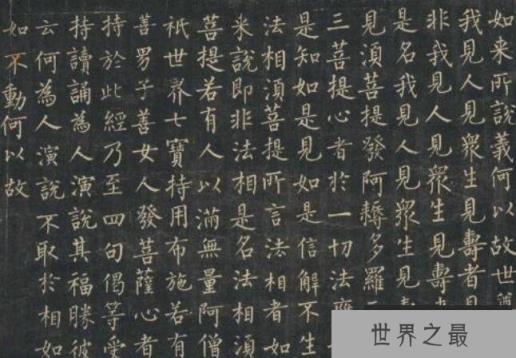 如来所說義何以故世
我見人見衆生見壽者見
非我見人見衆生見壽
是名我見人見衆生見
見湏菩提發阿耨多羅
三菩提心者於一切法
是知如是見如是信解不生
法相湏菩提所言法相者如
来說即非法相是名法相湏
菩提若有人以滿無量阿僧
祇世界七寶持用布施若有
善男子善女人發菩薩心者
持於此經乃至四句偈等受
持讀誦為人演說其福勝彼
云何為人演說不取於相如
如不動何以故
世界之最